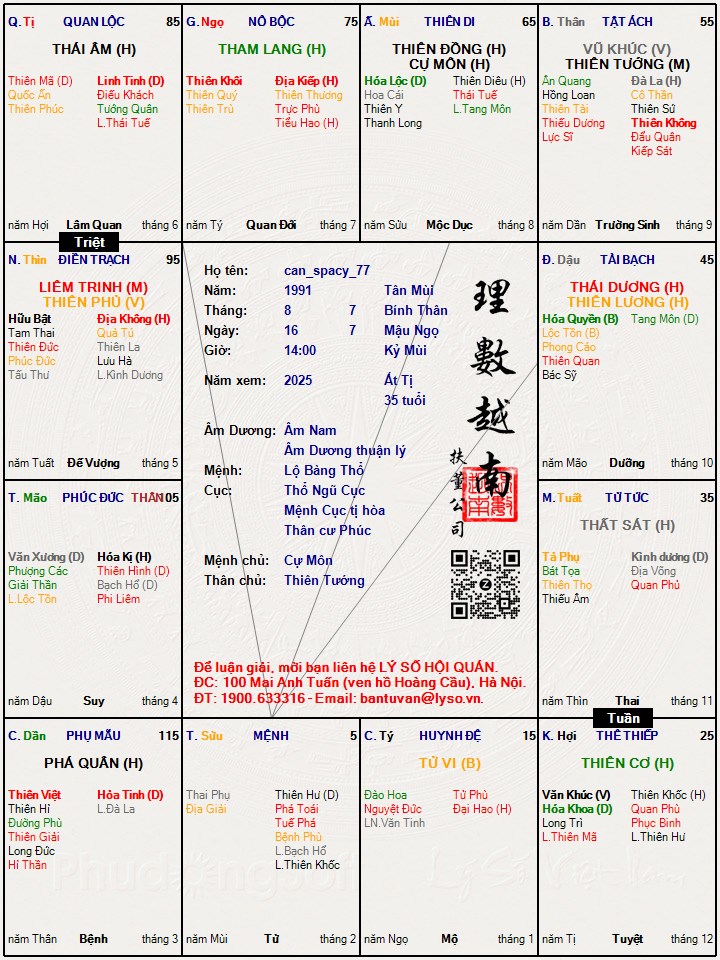 Q. Tị QUAN LỘC 85
THÁI ÂM (H)
Thiên Mã (D) Linh Tinh (D)
Quốc Ấn Điếu Khách
Thiên Phúc Tướng Quân
L.Thái Tuế
năm Hợi Lâm Quan tháng 6
G. Ngọ NÔ BỘC 75
THAM LANG (H)
Thiên Khôi Địa Kiếp (H)
Thiên Quý Thiên Thương
Thiên Trù Trực Phù
Tiểu Hao (H)
năm Tý Quan Đới tháng 7
Ấ. Mùi THIÊN DI 65
THIÊN ĐỒNG (H)
CỰ MÔN (H)
Hóa Lộc (D) Thiên Diêu (H)
Hoa Cái Thái Tuế
Thiên Y L.Tang Môn
Thanh Long
năm Sửu Mộc Dục tháng 8
B. Thân TẬT ÁCH 55
VŨ KHÚC (V)
THIÊN TƯỚNG (M)
Ân Quang Đà La (H)
Hồng Loan Cô Thần
Thiên Tài Thiên Sứ
Thiếu Dương Thiên Không
Lực Sĩ Đẩu Quân
Kiếp Sát
năm Dần Trường Sinh tháng 9
Triệt
N. Thìn ĐIỀN TRẠCH 95
LIÊM TRINH (M)
THIÊN PHỦ (V)
Hữu Bật Địa Không (H)
Tam Thai Quả Tú
Thiên Đức Thiên La
Phúc Đức Lưu Hà
Tấu Thư L.Kình Dương
năm Tuất Đế Vượng tháng 5
Họ tên: can_spacy_77
Năm: 1991 Tân Mùi
Tháng: 8 7 Bính Thân
Ngày: 16 7 Mậu Ngọ
Giờ: 14:00 Kỷ Mùi
Năm xem: 2025 Ất Tị
35 tuổi
Âm Dương: Âm Nam
Âm Dương thuận lý
Mệnh: Lộ Bàng Thổ
Cục: Thổ Ngũ Cục
Mệnh Cục tị hòa
Thân cư Phúc
Mệnh chủ: Cự Môn
Thân chủ: Thiên Tướng
理數越南
扶董公司
Để luận giải, mời bạn liên hệ LÝ SỐ HỘI QUÁN.
ĐC: 100 Mai Anh Tuấn (ven hồ Hoàng Cầu), Hà Nội.
ĐT: 1900.633316 - Email: bantuvan@lyso.vn.
Đ. Dậu TÀI BẠCH 45
THÁI DƯƠNG (H)
THIÊN LƯƠNG (H)
Hóa Quyền (B) Tang Môn (D)
Lộc Tồn (B)
Phong Cáo
Thiên Quan
Bác Sỹ
năm Mão Dưỡng tháng 10
T. Mão PHÚC ĐỨC THÂN 105
Văn Xương (D) Hóa Kị (H)
Phượng Các Thiên Hình (D)
Giải Thần Bạch Hổ (D)
L.Lộc Tồn Phi Liêm
năm Dậu Suy tháng 4
M. Tuất TỬ TỨC 35
THẤT SÁT (H)
Tả Phụ Kình dương (D)
Bát Tọa Địa Võng
Thiên Thọ Quan Phủ
Thiếu Âm
năm Thìn Thai tháng 11
Tuần
C. Dần PHỤ MẪU 115
PHÁ QUÂN (H)
Thiên Việt Hỏa Tinh (D)
Thiên Hỉ L.Đà La
Đường Phù
Thiên Giải
Long Đức
Hỉ Thần
năm Thân Bệnh tháng 3
T. Sửu MỆNH 5
Thai Phụ Thiên Hư (D)
Địa Giải Phá Toái
Tuế Phá
Bệnh Phù
L.Bạch Hổ
L.Thiên Khốc
năm Mùi Tử tháng 2
C. Tý HUYNH ĐỆ 15
TỬ VI (B)
Đào Hoa Tử Phù
Nguyệt Đức Đại Hao (H)
LN.Văn Tinh
năm Ngọ Mộ tháng 1
K. Hợi THÊ THIẾP 25
THIÊN CƠ (H)
Văn Khúc (V) Thiên Khốc (H)
Hóa Khoa (D) Quan Phù
Long Trì Phục Binh
L.Thiên Mã L.Thiên Hư
năm Tị Tuyệt tháng 12